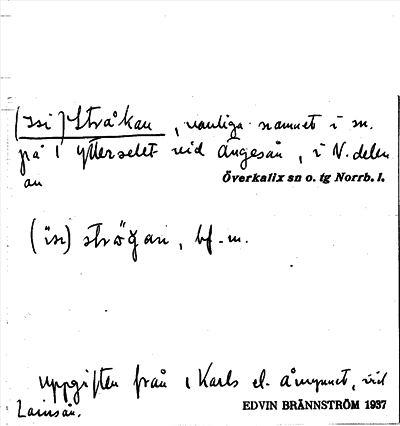 (Isi)Stråkan, vanliga namnet i sn.
på 1 Ytterselet vid Ängesån, i N. delen
av Överkalix sn o. tg Norrb. l.
(ìsi) strǫ̀ɣan, bf. m.
Uppgiften från 1 Karls el. Åmynnet, vid
Lainsån.
EDVIN BRÄNNSTRÖM 1937